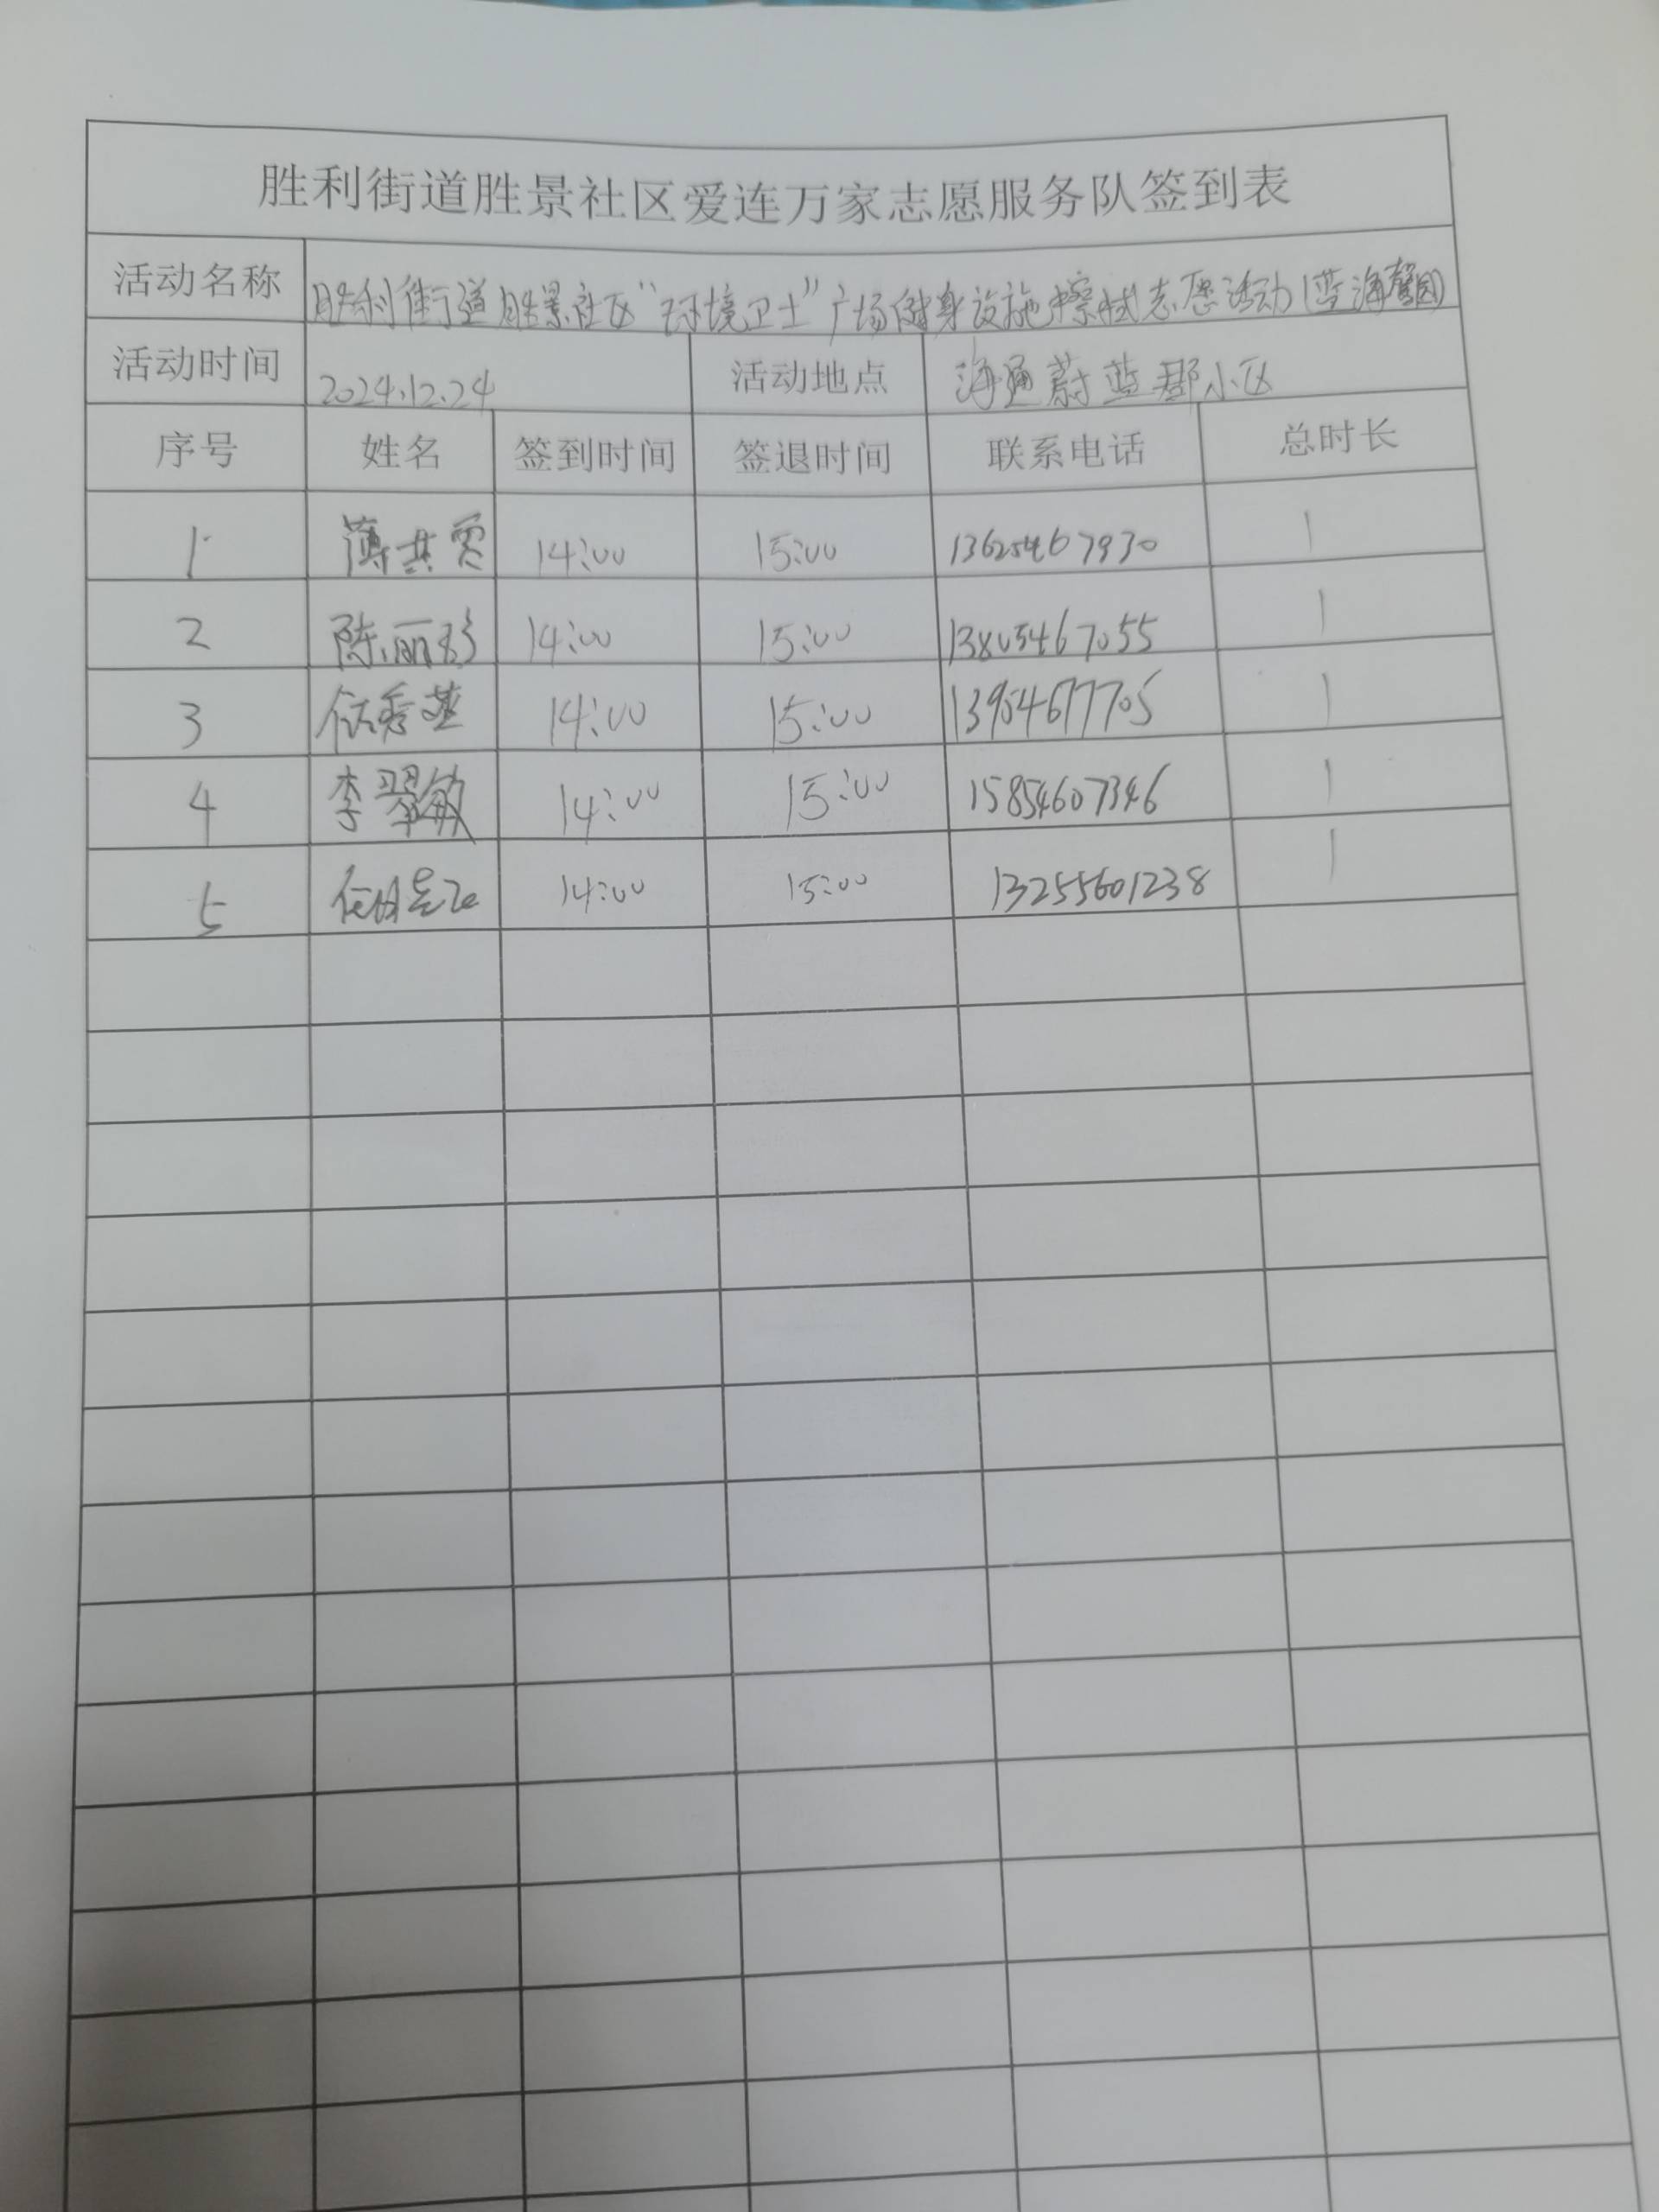 胜利街道胜景社区爱连万家志愿服务队签到表
活动名称 胜利街道胜景社区“环境卫士”广场健身设施擦拭志愿活动(蓝海馨园)
活动时间 2024.12.24 活动地点 海通蔚蓝郡小区
序号 姓名 签到时间 签退时间 联系电话 总时长
1 薄其雲 14:00 15:00 13625467930 1
2 陈丽珍 14:00 15:00 13805467055 1
3 任秀莲 14:00 15:00 13954677705 1
4 李翠敏 14:00 15:00 15854607346 1
5 14:00 15:00 13255601238 1